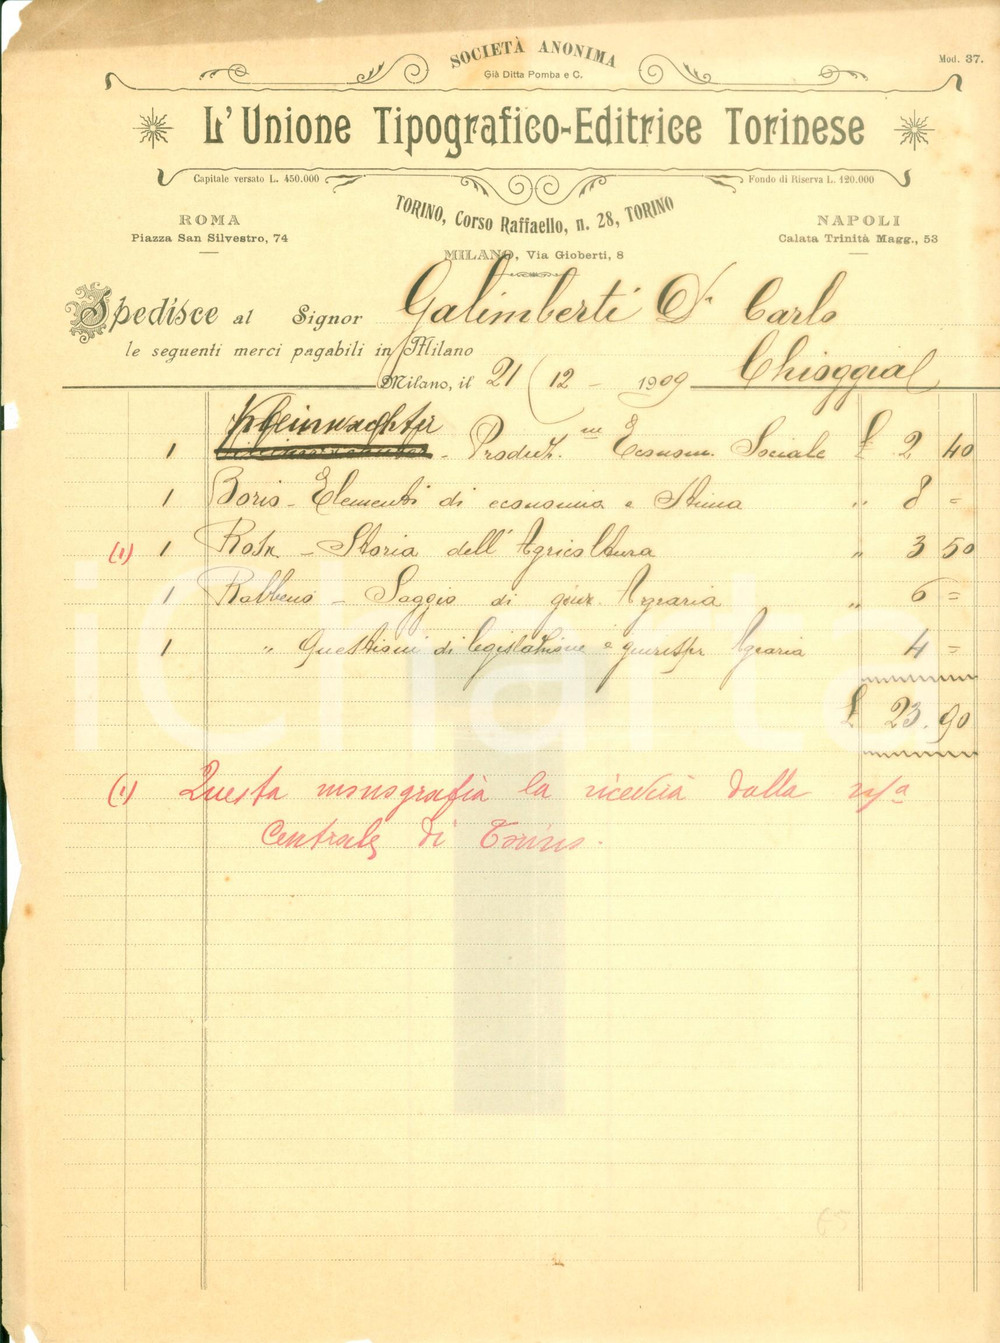 SOCIETÀ ANONIMA
Già Ditta Pomba e C.
Mod. 37.
L'Unione Tipografico-Editrice Torinese
Capitale versato L. 450.000
Fondo di Riserva L. 120.000
TORINO, Corso Raffaello, n. 28, TORINO
ROMA
Piazza San Silvestro, 74
NAPOLI
Calata Trinità Magg., 53
MILANO, Via Gioberti, 8
Spedisce al Signor Galimberti Dr Carlo
le seguenti merci pagabili in Milano
Milano, il 21/12 - 1909 Chioggia
1 Kleinwächter - Produz.ne Econom. Sociale £ 2 40
1 Borio - Elementi di economia e Stima " 8 =
(1) 1 - Storia dell'Agricoltura " 3 50
1 Rabbeno - Saggio di giur. Agraria " 6 =
1 " Questioni di legislazione e giurispr Agraria 4 =
£ 23.90
(1) Questa monografia la riceverà dalla n/a
Centrale di Torino.
iCharta